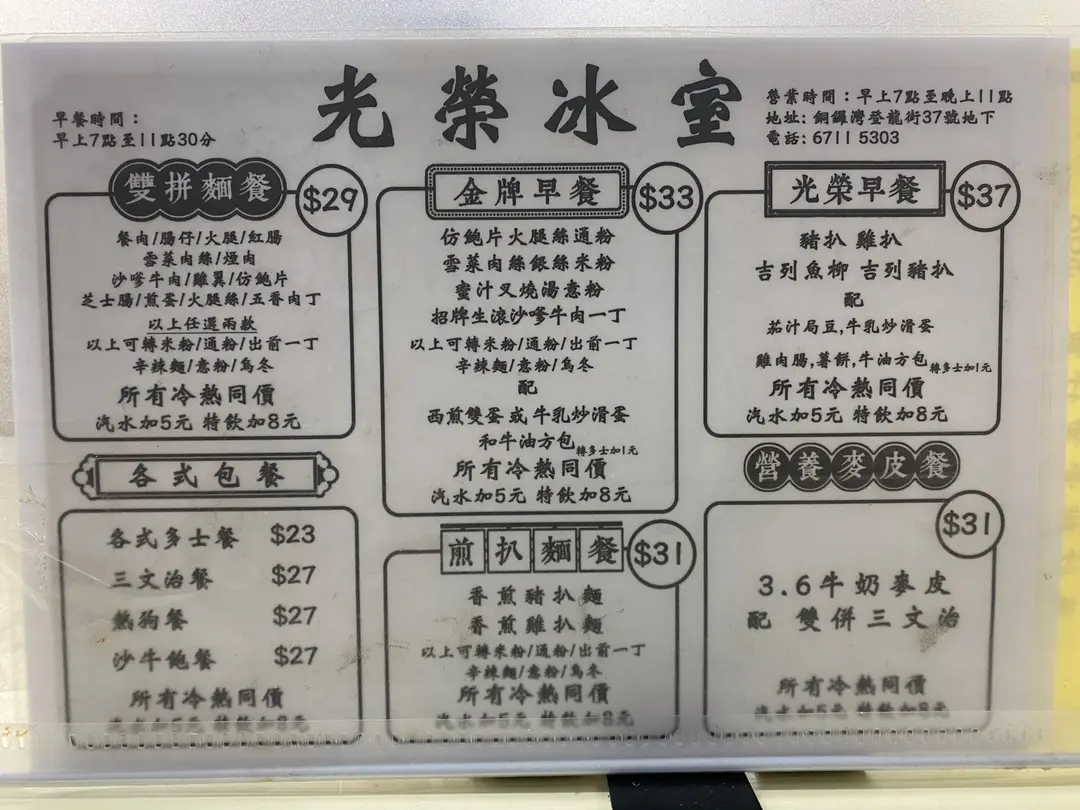 光榮冰室
早餐時間：
早上7點至11點30分
營業時間：早上7點至晚上11點
地址: 銅鑼灣登龍街37號地下
電話: 6711 5303
雙拼麵餐
$29
餐肉/腸仔/火腿/紅腸
雪菜肉絲/煙肉
沙嗲牛肉/雞翼/仿鮑片
芝士腸/煎蛋/火腿絲/五香肉丁
以上任選兩款
以上可轉米粉/通粉/出前一丁
辛辣麵/意粉/烏冬
所有冷熱同價
汽水加5元 特飲加8元
各式包餐
各式多士餐 $23
三文治餐 $27
熱狗餐 $27
沙牛飽餐 $27
所有冷熱同價
汽水加5元 特飲加8元
金牌早餐
$33
仿鮑片火腿絲通粉
雪菜肉絲銀絲米粉
蜜汁叉燒湯意粉
招牌生滾沙嗲牛肉一丁
以上可轉米粉/通粉/出前一丁
辛辣麵/意粉/烏冬
配
西煎雙蛋 或 牛乳炒滑蛋
和牛油方包 轉多士加1元
所有冷熱同價
汽水加5元 特飲加8元
煎扒麵餐
$31
香煎豬扒麵
香煎雞扒麵
以上可轉米粉/通粉/出前一丁
辛辣麵/意粉/烏冬
所有冷熱同價
汽水加5元 特飲加8元
光榮早餐
$37
豬扒 雞扒
吉列魚柳 吉列豬扒
配
茄汁局豆,牛乳炒滑蛋
雞肉腸,薯餅,牛油方包 轉多士加1元
所有冷熱同價
汽水加5元 特飲加8元
營養麥皮餐
$31
3.6牛奶麥皮
配 雙併三文治
所有冷熱同價
汽水加5元 特飲加8元